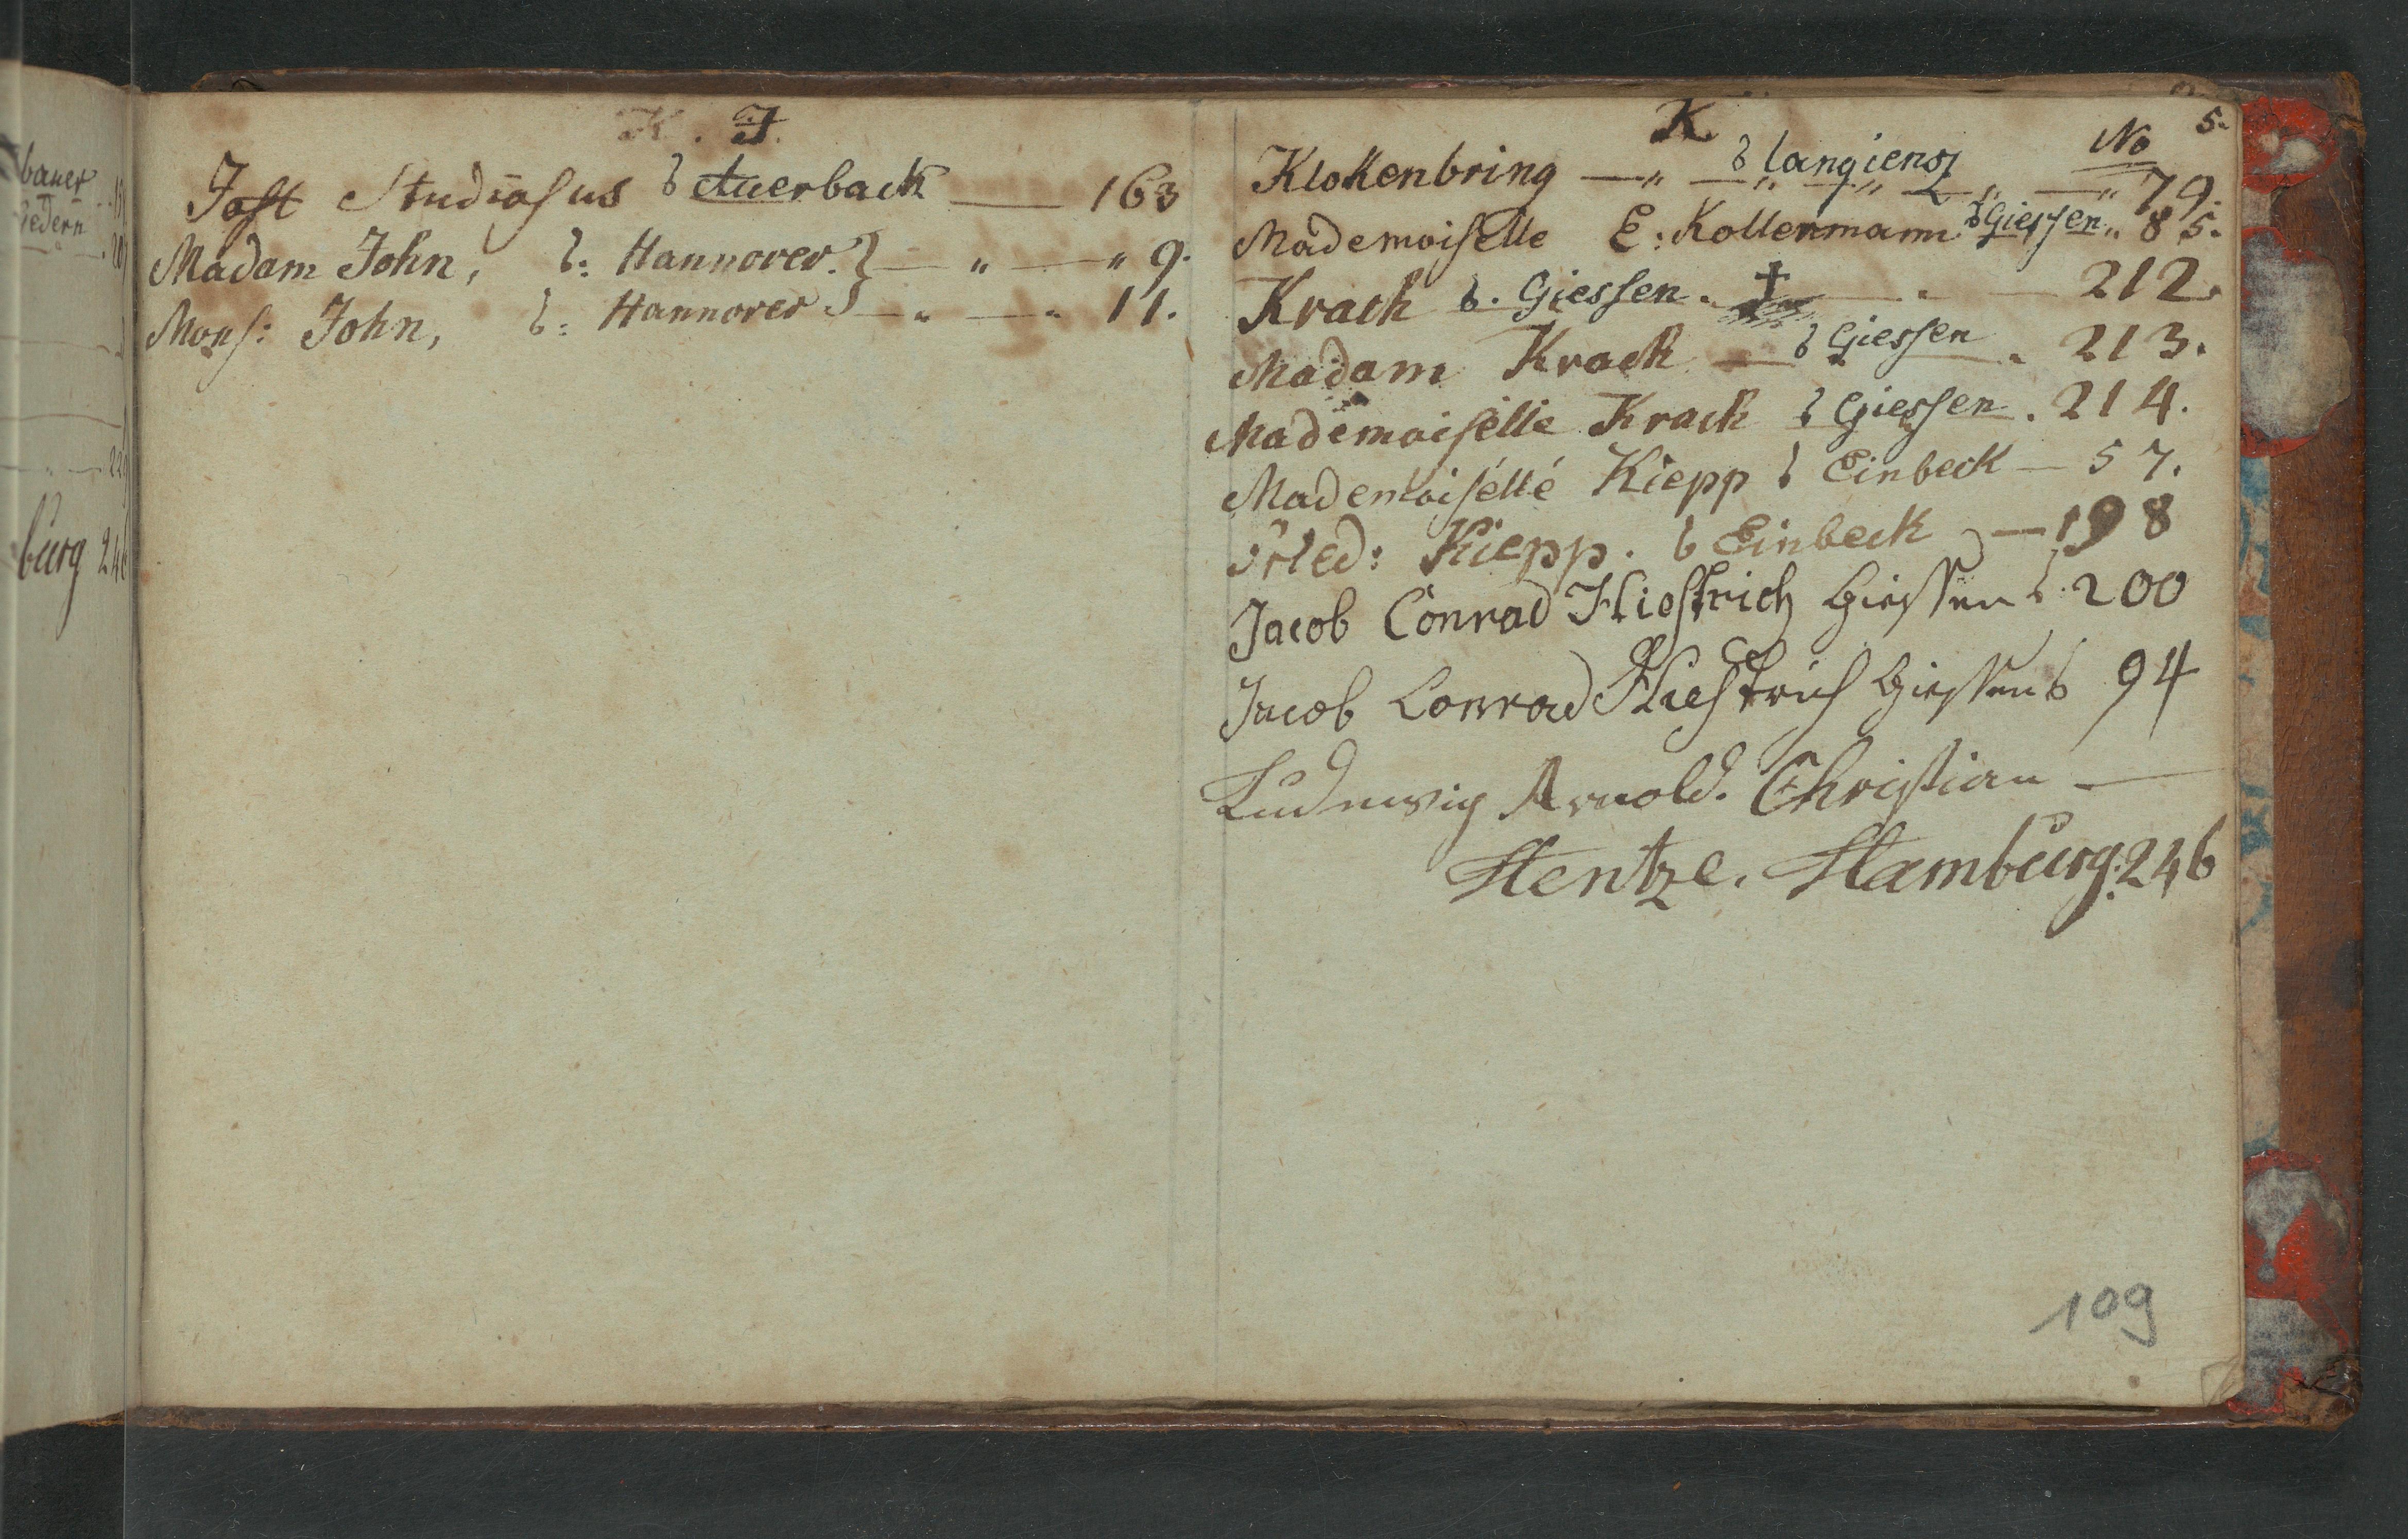 baner
Gedern
burg 246
K. J.
Jost Studiosus b Auerback — 163
Madam John, b: Hannover. } — " — " 9.
Mons: John, b: Hannover } — " — " 11.
K. No 5.
Klokenbring — " — " — " — " — " 79.
b langiens
Mademoiselle E: Kollenmann b Giessen " 85.
Krach b. Giessen. † — " — 212.
Madam Krach — b Giessen " 213.
Mademoiselle Krach b Giessen. 214.
Mademoiselle Kiepp b Einbeck — 57.
Fried: Kiepp. b Einbeck — 198
Jacob Conrad Hiestrich Giessen b. 200
Jacob Conrad Hiestrich Giessen b 94
Ludewig Arnold. Christian —
Hentze. Hamburg: 246
109